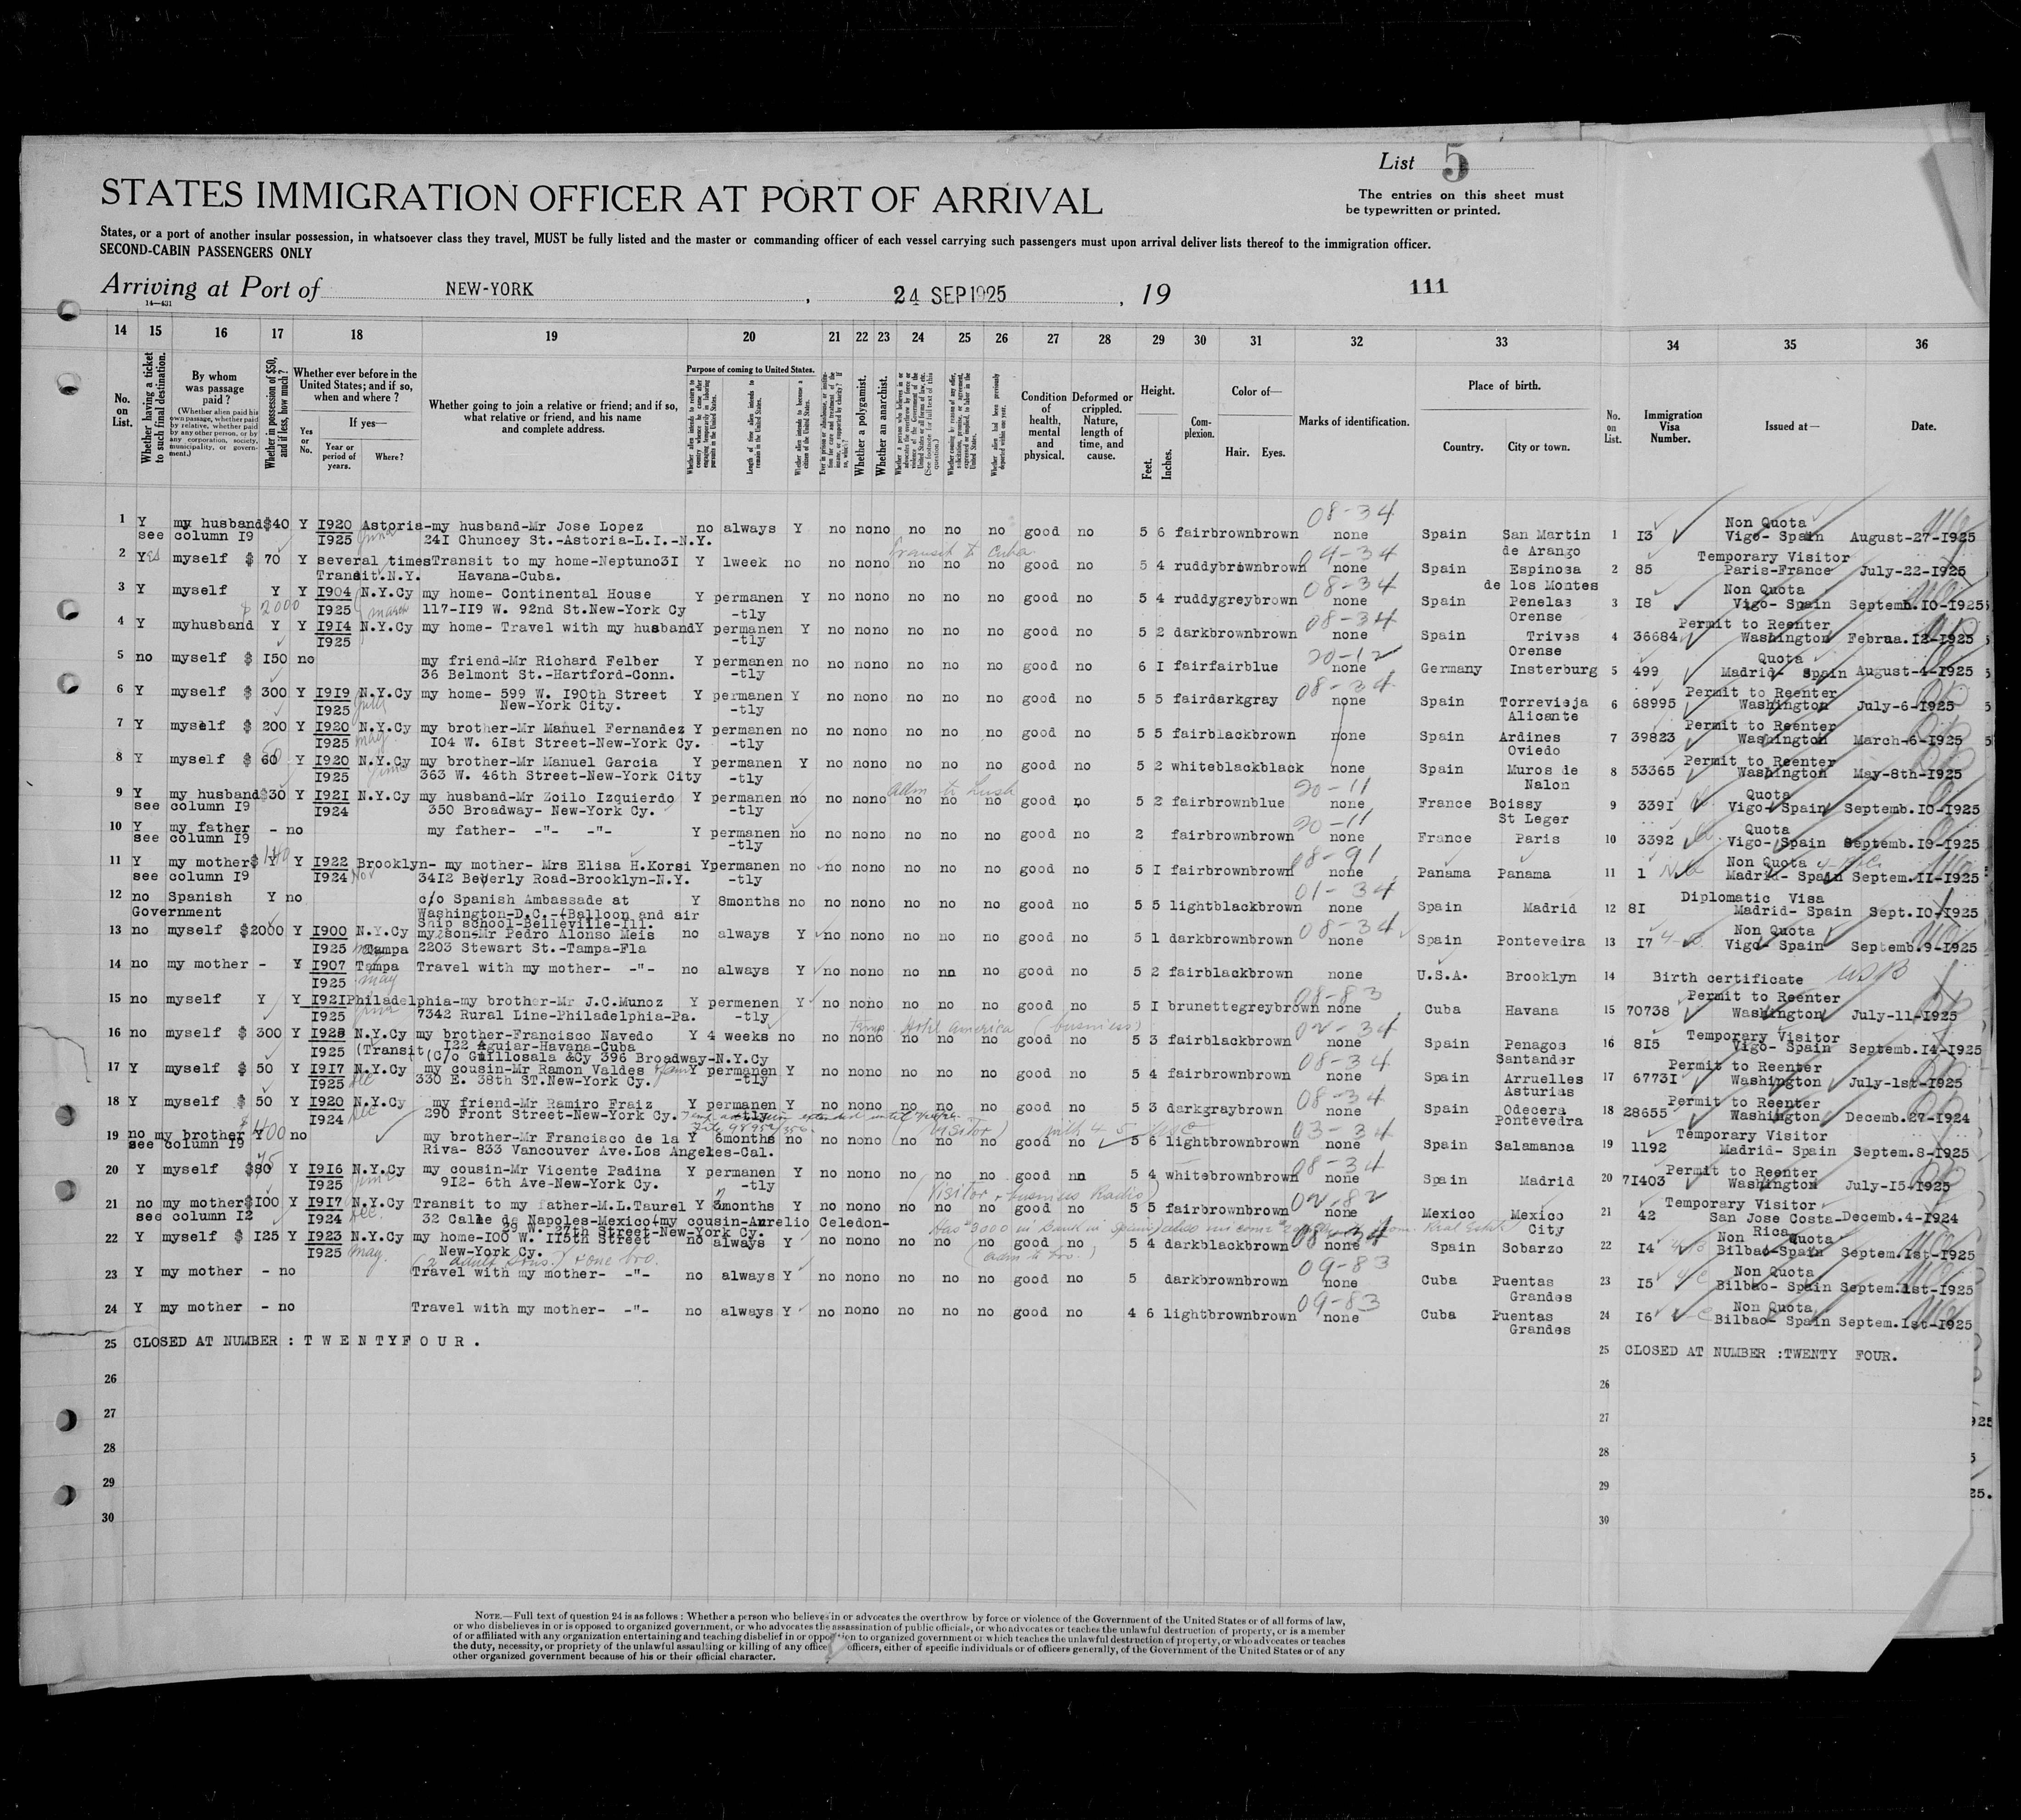 List 5
STATES IMMIGRATION OFFICER AT PORT OF ARRIVAL
The entries on this sheet must
be typewritten or printed.
States, or a port of another insular possession, in whatsoever class they travel, MUST be fully listed and the master or commanding officer of each vessel carrying such passengers must upon arrival deliver lists thereof to the immigration officer.
SECOND-CABIN PASSENGERS ONLY
Arriving at Port of NEW-YORK, 24 SEP 1925, 19 111
14-431
14 15 16 17 18 19 20 21 22 23 24 25 26 27 28 29 30 31 32 33 34 35 36
No. on List.
Whether having a ticket to such final destination.
By whom was passage paid?
(Whether alien paid his own passage, whether paid by relative, whether paid by any other person, or by any corporation, society, municipality, or government.)
Whether in possession of $50, and if less, how much?
Whether ever before in the United States; and if so, when and where?
If yes—
Yes or No.
Year or period of years.
Where?
Whether going to join a relative or friend; and if so, what relative or friend, and his name and complete address.
Purpose of coming to United States.
Length of time alien intends to remain in the United States.
Whether alien intends to become a citizen of the United States.
Whether a polygamist.
Whether an anarchist.
Condition of health, mental and physical.
Deformed or crippled. Nature, length of time, and cause.
Height.
Feet. Inches.
Complexion.
Color of—
Hair. Eyes.
Marks of identification.
Place of birth.
Country. City or town.
No. on List.
Immigration Visa Number.
Issued at—
Date.
08-34
1 Y my husband $40 Y I920 Astoria-my husband-Mr Jose Lopez no always Y no no no no no no good no 5 6 fair brown brown Spain San Martin 1 I3 Non Quota
see column I9 I925 24I Chuncey St.-Astoria-L.I.-N.Y. de Arango Vigo- Spain August-27-I925
transit to Cuba 04-34
2 Yes myself $ 70 Y several times Transit to my home-Neptuno3I Y lweek no no no no no no no good no 5 4 ruddy brown brown none Spain Espinosa 2 85 Temporary Visitor
Transit.N.Y. Havana-Cuba. de los Montes Paris-France July-22-I925
08-34
3 Y myself Y Y I904 N.Y.Cy my home- Continental House Y permanen Y no no no no no no good no 5 4 ruddy grey brown none Spain Penelas 3 I8 Non Quota
$ 2000 I925 march 117-II9 W. 92nd St.New-York Cy -tly Orense Vigo- Spain Septemb.IO-I925
08-34
4 Y myhusband Y Y I9I4 N.Y.Cy my home- Travel with my husband Y permanen Y no no no no no no good no 5 2 dark brown brown none Spain Trives 4 36684 Permit to Reenter
I925 -tly Orense Washington Februa.I2-I925
20-12
5 no myself $ I50 no my friend-Mr Richard Felber Y permanen no no no no no no no good no 6 I fair fair blue none Germany Insterburg 5 499 Quota
36 Belmont St.-Hartford-Conn. -tly Madrid- Spain August-4-I925
08-34
6 Y myself $ 300 Y I9I9 N.Y.Cy my home- 599 W. I90th Street Y permanen Y no no no no no no good no 5 5 fair dark gray Spain Torrevieja 6 68995 Permit to Reenter
I925 New-York City. -tly Alicante Washington July-6-I925
7 Y myself $ 200 Y I920 N.Y.Cy my brother-Mr Manuel Fernandez Y permanen no no no no no no no good no 5 5 fair black brown none Spain Ardines 7 39823 Permit to Reenter
I925 may I04 W. 6Ist Street-New-York Cy. -tly Oviedo Washington March-6-I925
8 Y myself $ 60 Y I920 N.Y.Cy my brother-Mr Manuel Garcia Y permanen Y no no no no no no good no 5 2 white black black none Spain Muros de Nalon 8 53365 Permit to Reenter
I925 363 W. 46th Street-New-York City -tly Washington May-8th-I925
adm to husb 20-11
9 Y my husband $30 Y I92I N.Y.Cy my husband-Mr Zoilo Izquierdo Y permanen no no no no no no no good no 5 2 fair brown blue none France Boissy St Leger 9 339I Quota
see column I9 I924 350 Broadway- New-York Cy. -tly Vigo-Spain Septemb.IO-I925
20-11
10 Y my father - no my father- -"- -"- Y permanen no no no no no no no good no 2 fair brown brown none France Paris 10 3392 Quota
see column I9 -tly Vigo-Spain Septemb.I0-I925
$ 140 08-91
11 Y my mother Y Y I922 Brooklyn- my mother- Mrs Elisa H.Korsi Y permanen no no no no no no no good no 5 I fair brown brown none Panama Panama 11 1 Non Quota
see column I9 I924 Nov 34I2 Beverly Road-Brooklyn-N.Y. -tly Madrid- Spain Septem.II-I925
01-34
12 no Spanish Y no c/o Spanish Ambassade at Y 8months no no no no no no no good no 5 5 light black brown none Spain Madrid 12 8I Diplomatic Visa
Government Washington-D.C.-(Balloon and air Madrid- Spain Sept.IO-I925
Ship school-Belleville-Ill.
08-34
13 no myself $2000 Y I900 N.Y.Cy my son-Mr Pedro Alonso Meis no always Y no no no no no no good no 5 1 dark brown brown none Spain Pontevedra 13 I7 Non Quota
I925 Tampa 2203 Stewart St.-Tampa-Fla Vigo- Spain Septemb.9-I925
14 no my mother - Y I907 Tampa Travel with my mother- -"- no always Y no no no no no no good no 5 2 fair black brown none U.S.A. Brooklyn 14 Birth certificate USB
I925 may
08-83
15 no myself Y Y I92I Philadelphia-my brother-Mr J.C.Munoz Y permenen Y no no no no no no good no 5 I brunette grey brown none Cuba Havana 15 70738 Permit to Reenter
I925 7342 Rural Line-Philadelphia-Pa. -tly Washington July-11-I925
Temp. Hotel America (business) 02-34
16 no myself $ 300 Y I925 N.Y.Cy my brother-Francisco Navedo Y 4 weeks no no no no no no no good no 5 3 fair black brown none Spain Penagos 16 8I5 Temporary Visitor
I925 (Transit I22 Aguiar-Havana-Cuba Santander Vigo- Spain Septemb.I4-I925
(C/o Guillosala &Cy 396 Broadway-N.Y.Cy
08-34
17 Y myself $ 50 Y I9I7 N.Y.Cy my cousin-Mr Ramon Valdes Y permanen Y no no no no no no good no 5 4 fair brown brown none Spain Arruelles 17 6773I Permit to Reenter
I925 Dec 330 E. 38th ST.New-York Cy. -tly Asturias Washington July-1st-I925
08-34
18 Y myself $ 50 Y I920 N.Y.Cy my friend-Mr Ramiro Fraiz Y permanen Y no no no no no no good no 5 3 dark gray brown none Spain Odecera 18 28655 Permit to Reenter
I924 Dec 290 Front Street-New-York Cy. -tly Pontevedra Washington Decemb.27-I924
$ 400 (Visitor) 03-34
19 no my brother Y no my brother-Mr Francisco de la Y 6months no no no no no no no good no 5 6 light brown brown none Spain Salamanca 19 1192 Temporary Visitor
see column I9 Riva- 833 Vancouver Ave.Los Angeles-Cal. Madrid- Spain Septem.8-I925
08-34
20 Y myself $80 Y I9I6 N.Y.Cy my cousin-Mr Vicente Padina Y permanen Y no no no no no no good no 5 4 white brown brown none Spain Madrid 20 7I403 Permit to Reenter
I925 9I2- 6th Ave-New-York Cy. -tly Washington July-I5-I925
(Visitor + business Radio) 02-82
21 no my mother $I00 Y I9I7 N.Y.Cy Transit to my father-M.L.Taurel Y months Y no no no no no no good no 5 5 fair brown brown none Mexico Mexico City 21 42 Temporary Visitor
see column I2 I924 Dec. 32 Calle de Napoles-Mexico(my cousin-Aurelio Celedon- San Jose Costa Rica Decemb.4-I924
29 W. 27th Street-New-York Cy.
08-34
22 Y myself $ I25 Y I923 N.Y.Cy my home-I00 W. II5th Street no always Y no no no no no no good no 5 4 dark black brown none Spain Sobarzo 22 I4 Non Quota
I925 may. New-York Cy. (adm to bro.) Bilbao-Spain Septem.1st-I925
(2 adult sons.) + one bro. 09-83
23 Y my mother - no Travel with my mother- -"- no always Y no no no no no no good no 5 dark brown brown none Cuba Puentas Grandes 23 I5 Non Quota
Bilbao- Spain Septem.1st-I925
09-83
24 Y my mother - no Travel with my mother- -"- no always Y no no no no no no good no 4 6 light brown brown none Cuba Puentas Grandes 24 I6 Non Quota
Bilbao- Spain Septem.Ist-I925
25 CLOSED AT NUMBER : T W E N T Y F O U R . 25 CLOSED AT NUMBER :TWENTY FOUR.
26 26
27 27
28 28
29 29
30 30
NOTE.—Full text of question 24 is as follows: Whether a person who believes in or advocates the overthrow by force or violence of the Government of the United States or of all forms of law,
or who disbelieves in or is opposed to organized government, or who advocates the assassination of public officials, or who advocates or teaches the unlawful destruction of property, or is a member
of or affiliated with any organization entertaining and teaching disbelief in or opposition to organized government or which teaches the unlawful destruction of property, or who advocates or teaches
the duty, necessity, or propriety of the unlawful assaulting or killing of any officer officers, either of specific individuals or of officers generally, of the Government of the United States or of any
other organized government because of his or their official character.